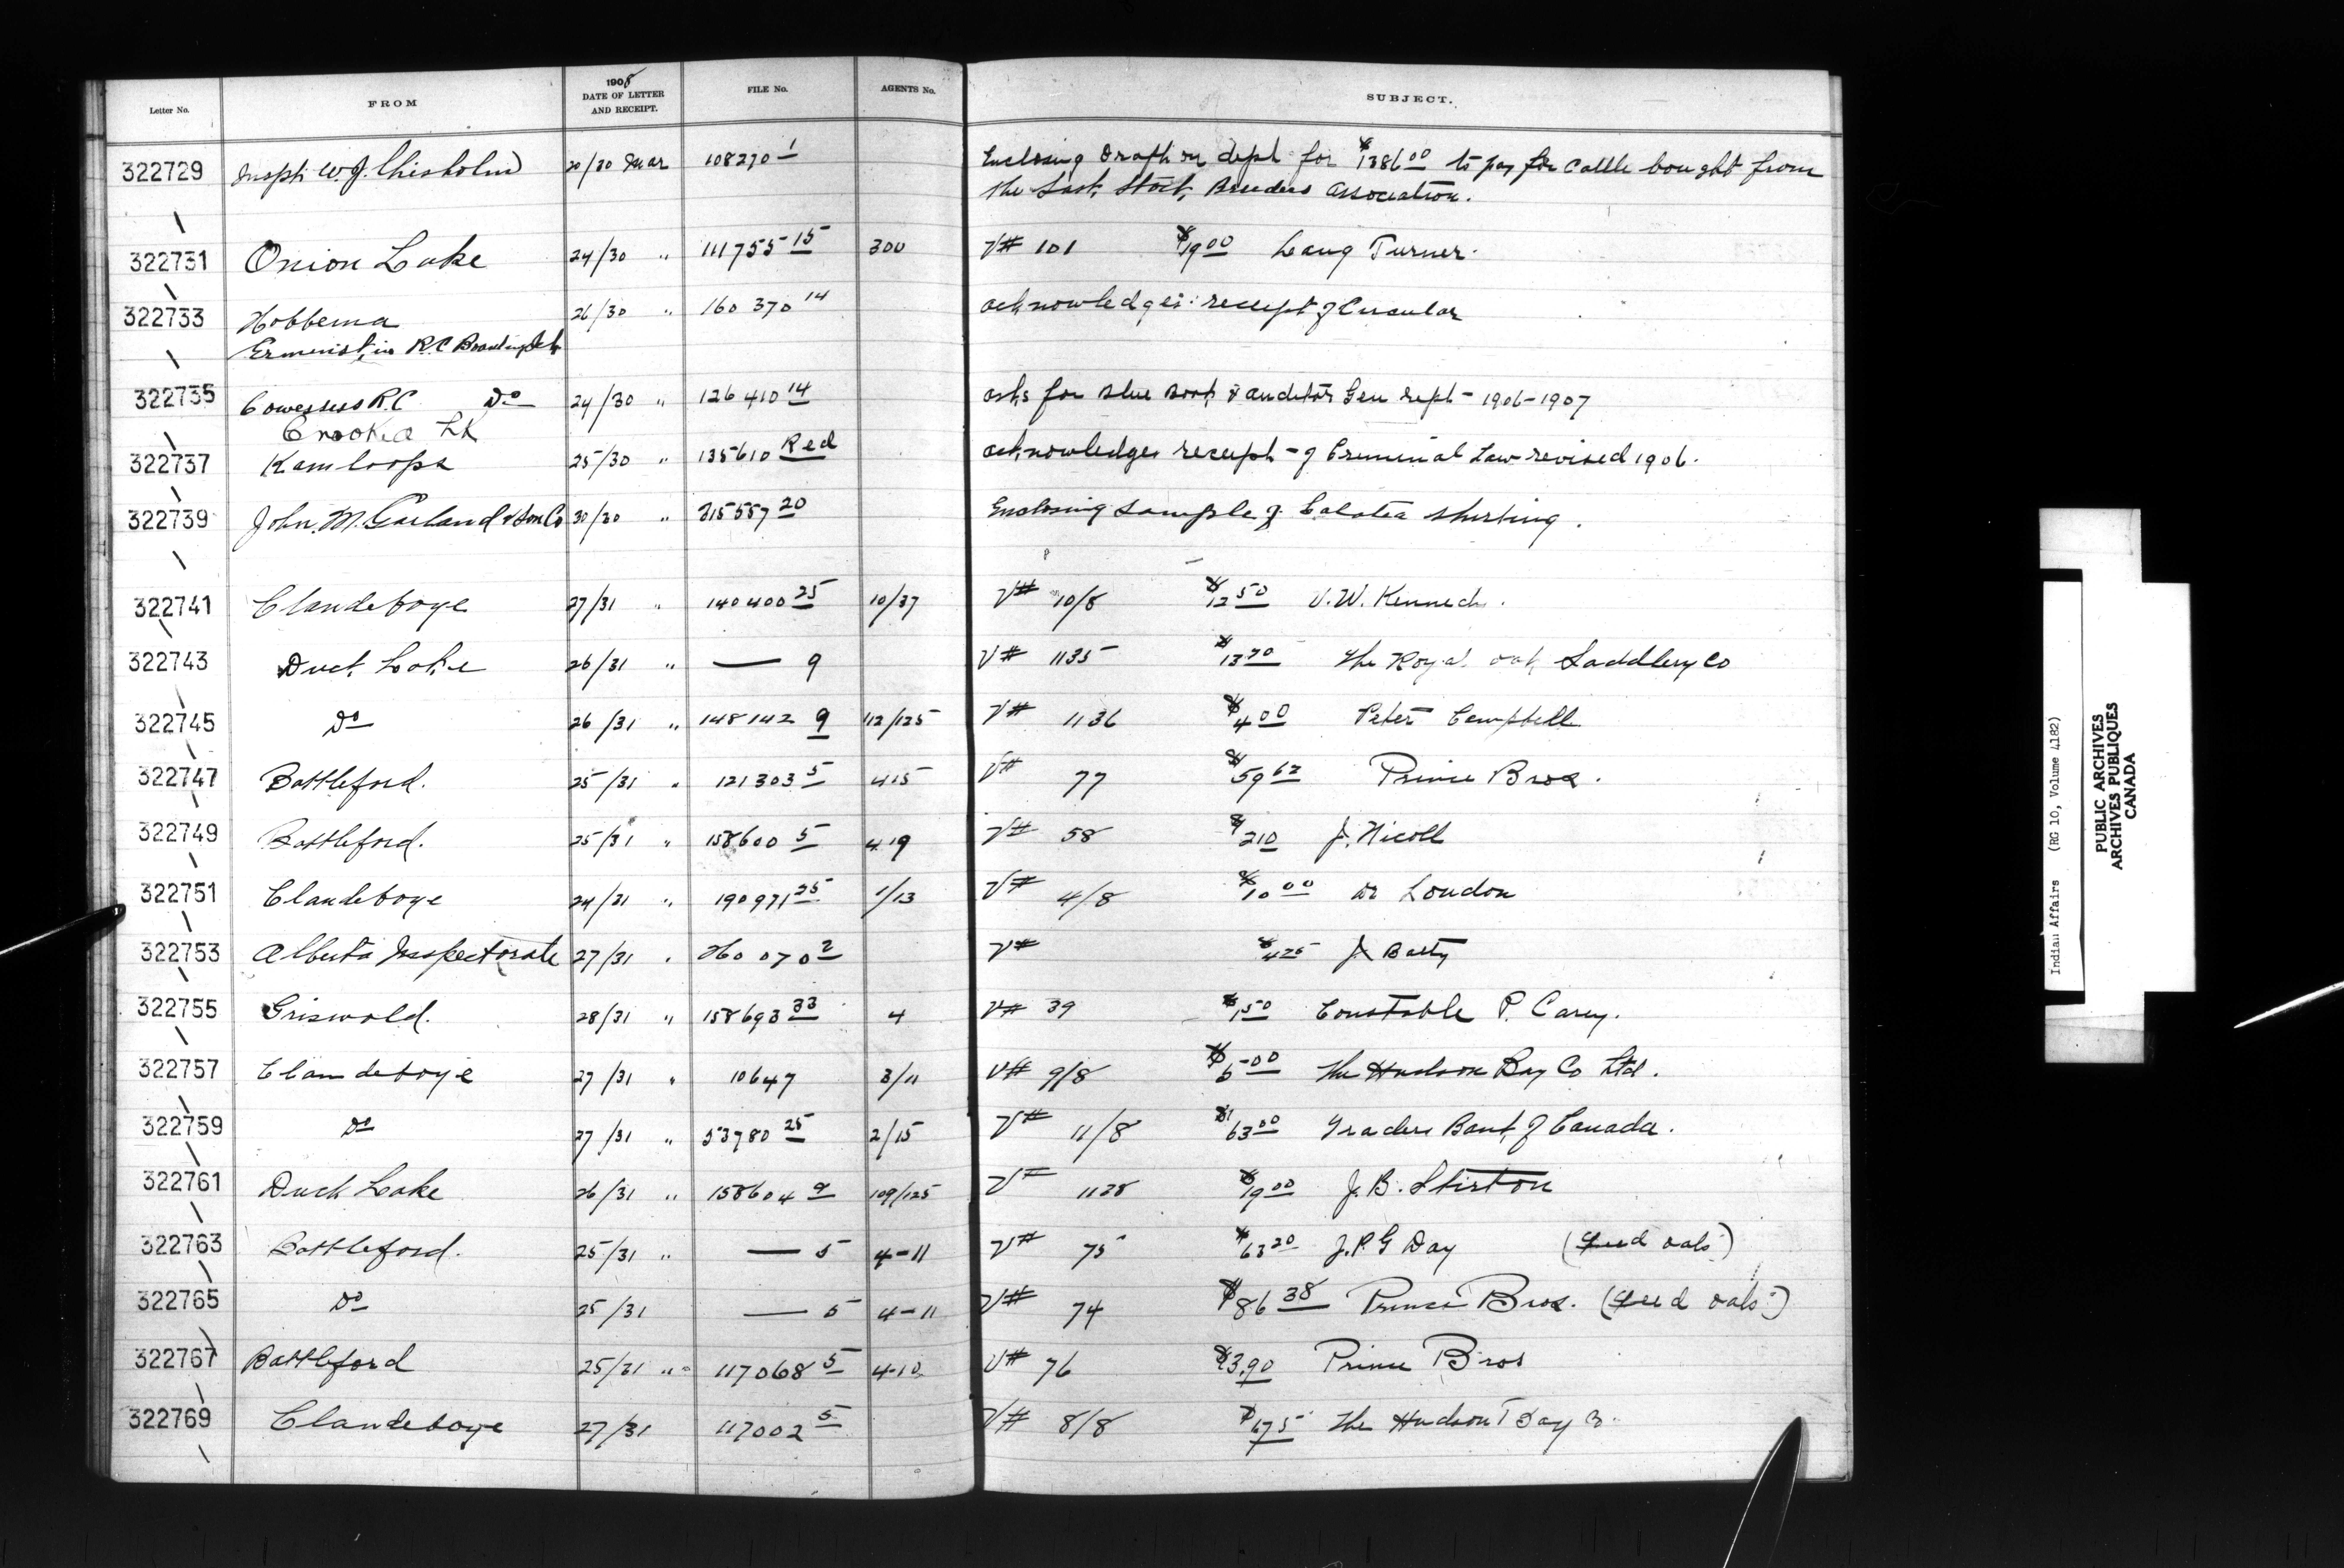 Letter No. FROM 1908 DATE OF LETTER AND RECEIPT. FILE No. AGENTS No. SUBJECT.
322729 Insptr W.J. Chisholm 20/30 Mar 108270 1 Enclosing draft on dept for $1386 00 to pay for cattle bought from
the Sask. Stock Breeders Association.
322731 Onion Lake 24/30 " 111755 15 300 V# 101 $19 00 Lang Turner.
322733 Hobbema 26/30 " 160370 14 acknowledges receipt of Circular
Ermineskin R.C Boarding Sch
322735 Cowesses R.C Do 24/30 " 126410 14 asks for Blue Book & Auditor Gen rept - 1906-1907
Crooked Lk
322737 Kamloops 25/30 " 135610 Red acknowledges receipt of Criminal Law revised 1906.
322739 John M. Garland & Son Co 30/30 " 215557 20 Enclosing sample of Galatea shirting.
322741 Clandeboye 27/31 " 140400 25 10/37 V# 10/8 $12 50 J.W. Kennedy.
322743 Duck Lake 26/31 " — 9 V# 1135 $13 70 The Royal oak Saddlery Co
322745 Do 26/31 " 148142 9 112/125 V# 1136 $4 00 Peter Campbell
322747 Battleford. 25/31 " 121303 5 415 V# 77 $59 62 Prince Bros.
322749 Battleford. 25/31 " 158600 5 419 V# 58 $2 10 J. Nicoll
322751 Clandeboye 24/31 " 190971 25 1/13 V# 4/8 $10 00 Dr London
322753 Alberta Inspectorate 27/31 " 260070 2 V# $4 25 J Batty
322755 Griswold. 28/31 " 158693 33 4 V# 39 $1 50 Constable P. Carey.
322757 Clandeboye 27/31 " 10647 3/11 V# 9/8 $5 00 The Hudson Bay Co Ltd.
322759 Do 27/31 " 53780 25 2/15 V# 11/8 $63 00 Traders Bank of Canada.
322761 Duck Lake 26/31 " 158604 9 109/125 V# 1128 $19 00 J.B. Stirton
322763 Battleford. 25/31 " — 5 4-11 V# 75 $63 20 J.P.G Day (seed oats)
322765 Do 25/31 — 5 4-11 V# 74 $86 38 Prince Bros. (seed oats)
322767 Battleford 25/31 " 117068 5 4-10 V# 76 $3.90 Prince Bros
322769 Clandeboye 27/31 117002 5 V# 8/8 $1 75 The Hudson Bay
Indian Affairs (RG 10, Volume 4182)
PUBLIC ARCHIVES
ARCHIVES PUBLIQUES
CANADA